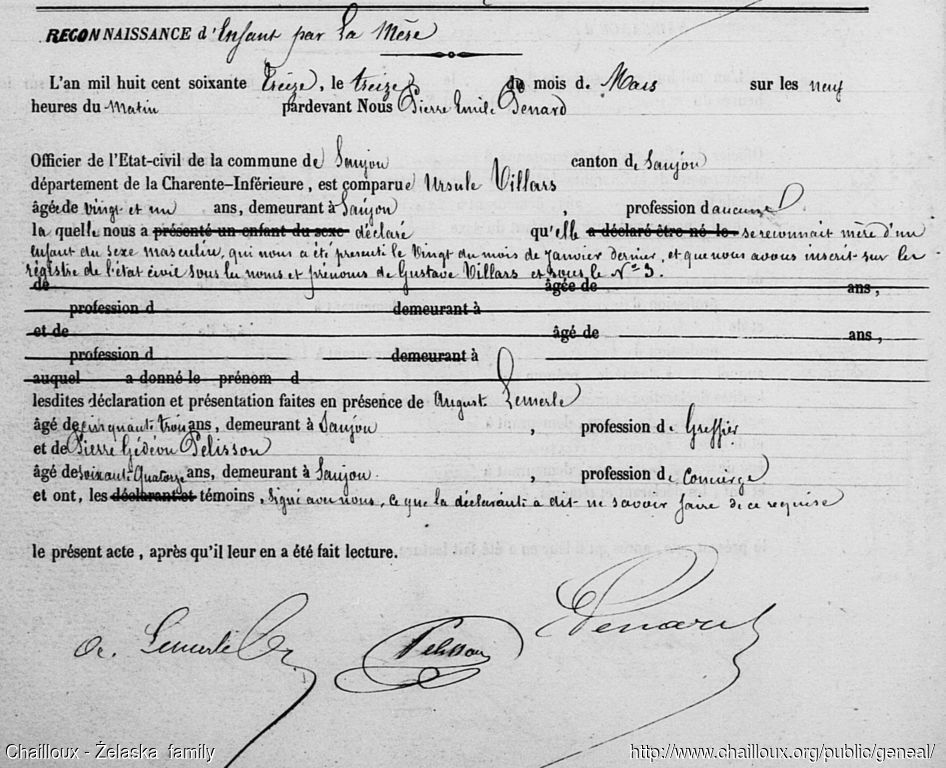 RECONNAISSANCE d'Enfant par La Mère
L'an mil huit cent soixante Treize, le treize du mois de Mars sur les neuf
heures du Matin pardevant Nous Pierre Emile Penard
Officier de l'Etat-civil de la commune de Saujon canton de Saujon
département de la Charente-Inférieure, est comparue Ursule Villars
âgée de vingt et un ans, demeurant à Saujon, profession d aucune
la quelle nous a présenté un enfant du sexe déclaré qu'elle a déclaré être né le se reconnait mère d'un
enfant du sexe masculin, qui nous a été présenté le vingt du mois de Janvier dernier, et que nous avons inscrit sur les
régistre de l'état civil sous les noms et prénoms de Gustave Villars et sous le Nº 3.
de âgée de ans,
profession d demeurant à
et de âgé de ans,
profession d demeurant à
auquel a donné le prénom d
lesdites déclaration et présentation faites en présence de August Lemerle
âgé de cinquante trois ans, demeurant à Saujon, profession de Greffier
et de Pierre Gédéon Pelisson
âgé de soixante Quatorze ans, demeurant à Saujon, profession de Concierge
et ont, les déclarant et témoins, signé avec nous, ce que la déclarante a dit ne savoir faire de ce requise
le présent acte, après qu'il leur en a été fait lecture.
a. Lemerle Pelisson Penard
Chailloux - Želaska family http://www.chailloux.org/public/geneal/